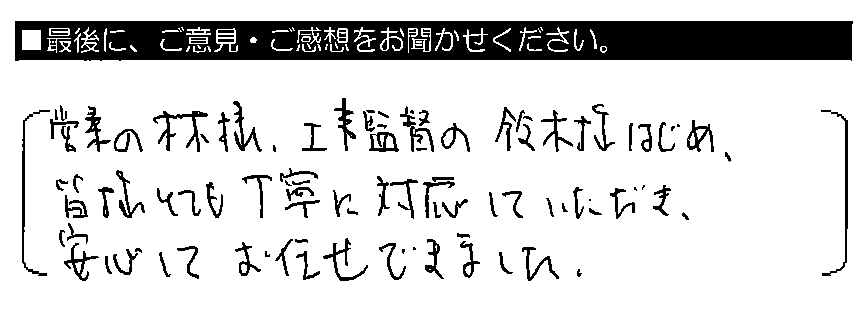 ■最後に、ご意見・ご感想をお聞かせください。
営業の林様、工事監督の鈴木様はじめ、
皆様とても丁寧に対応していただき、
安心してお任せできました。